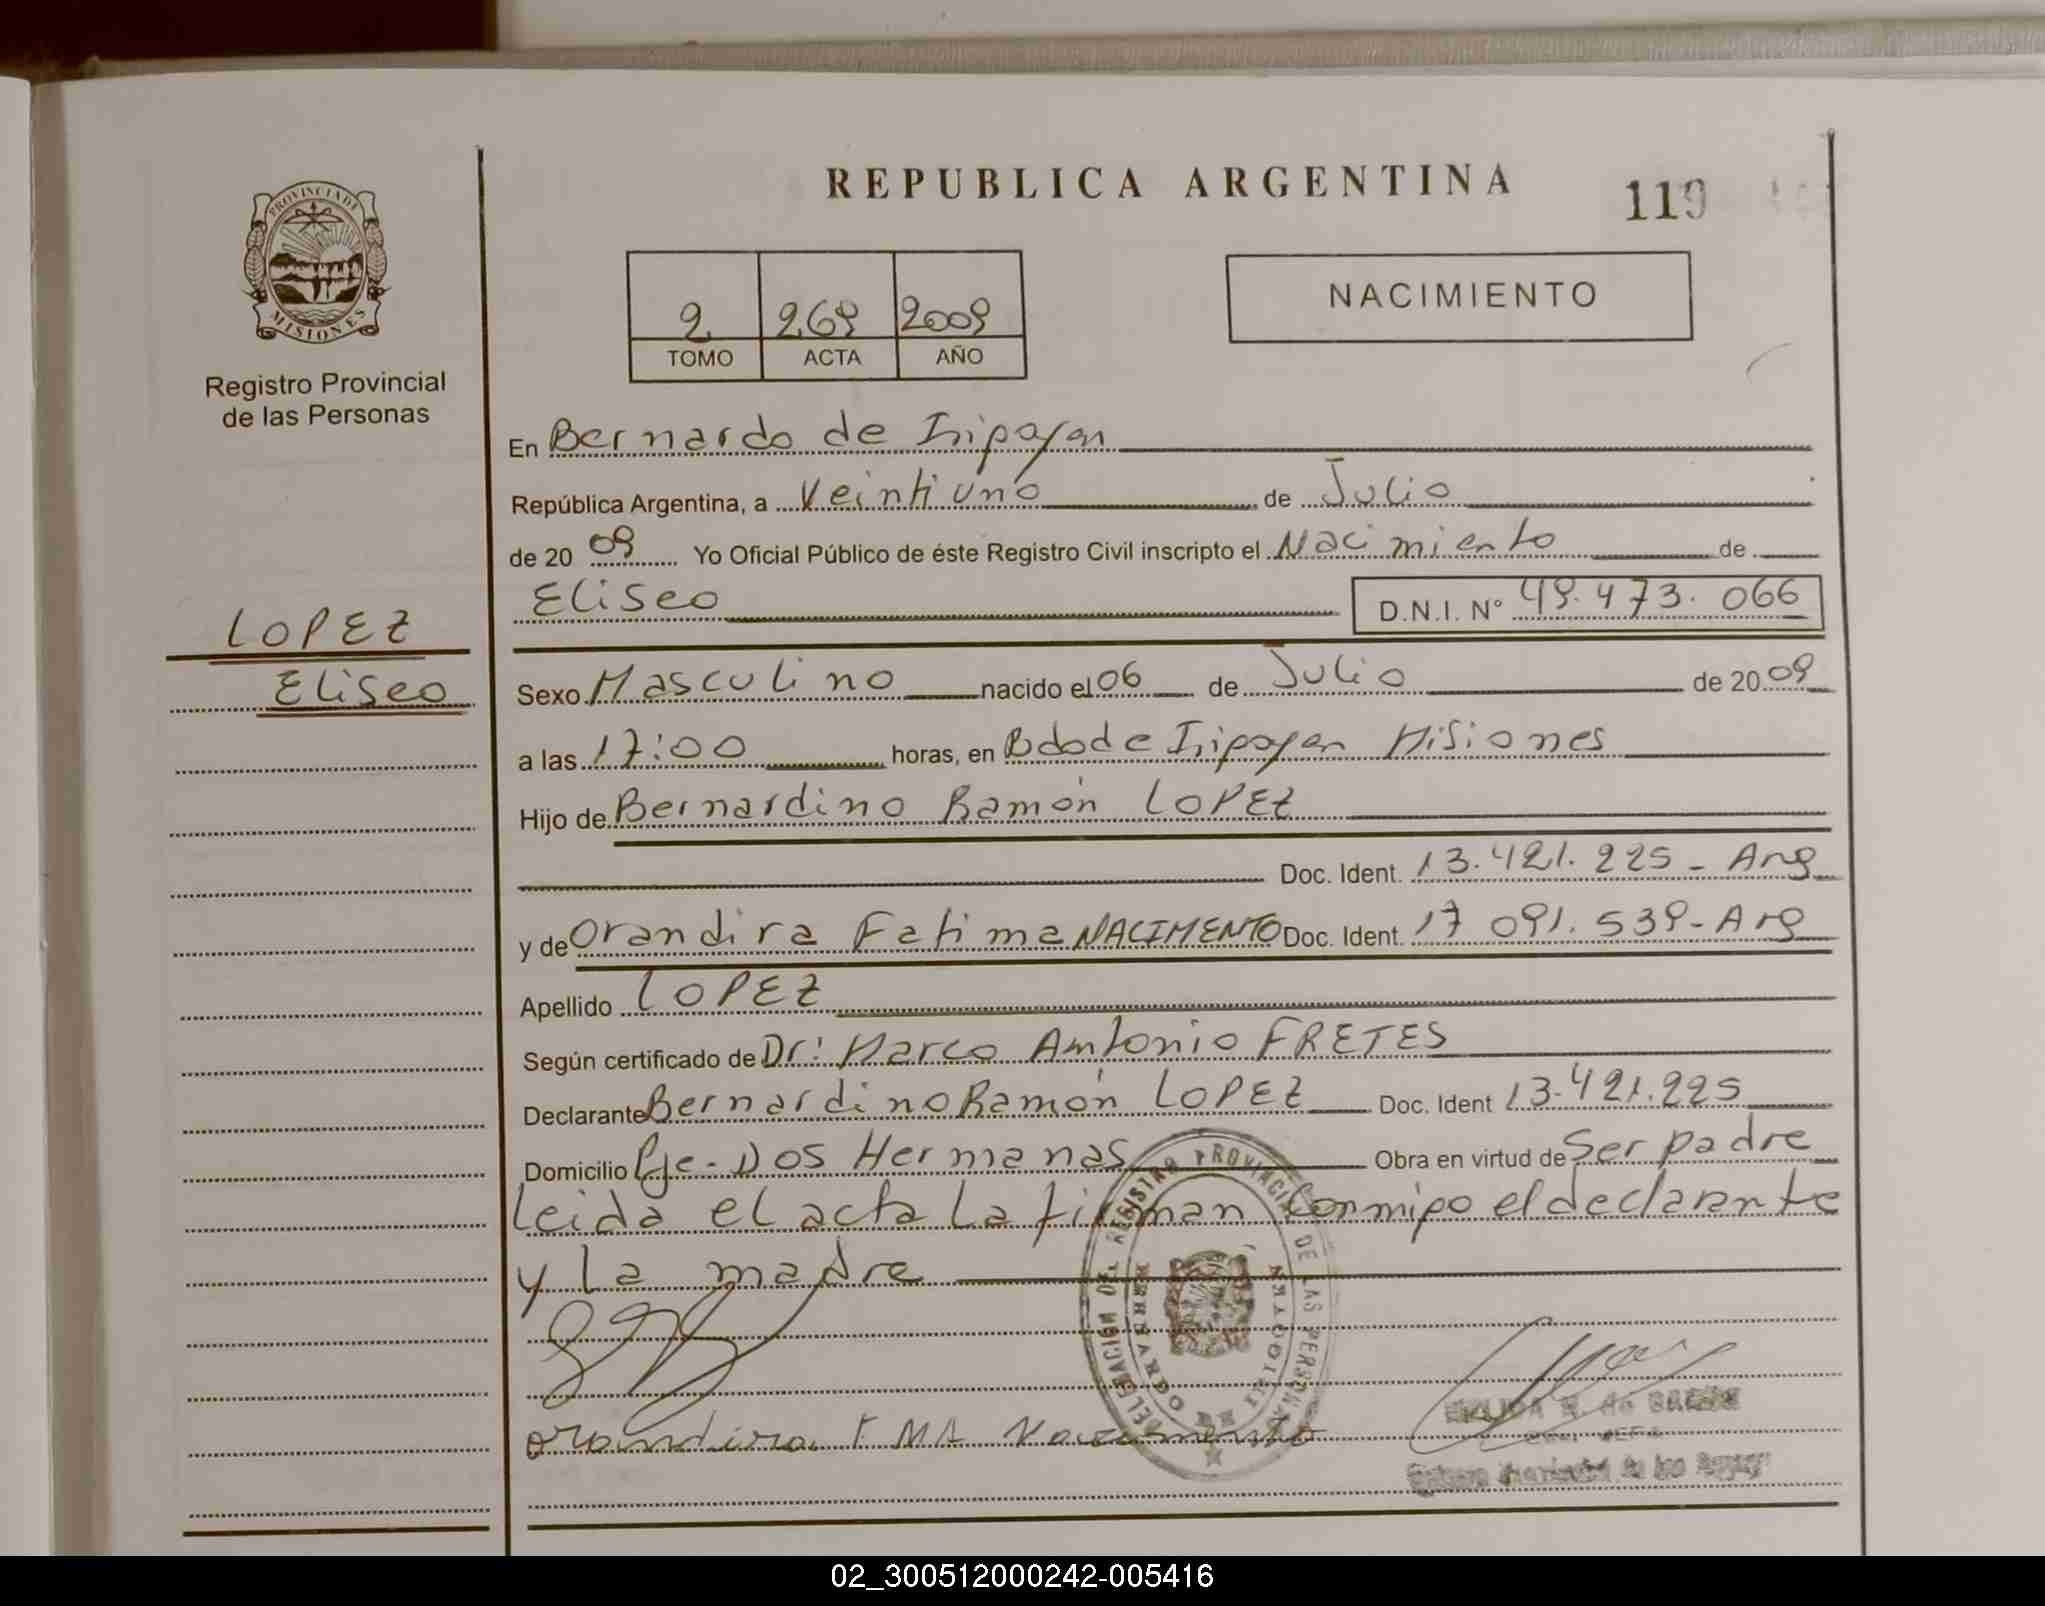 REPUBLICA ARGENTINA
119
PROVINCIA DE
MISIONES
Registro Provincial
de las Personas
2 269 2009
TOMO ACTA AÑO
NACIMIENTO
En Bernardo de Iripoyen
República Argentina, a Veintiuno de Julio
de 20 09 Yo Oficial Público de éste Registro Civil inscripto el Nacimiento de
Eliseo D.N.I. N° 49.473.066
LOPEZ
Eliseo
Sexo Masculino nacido el 06 de Julio de 20 09
a las 17:00 horas, en Bdo de Iripoyen Misiones
Hijo de Bernardino Ramón LOPEZ
Doc. Ident. 13.421.225 - Arg
y de Orandira Fatima NACIMENTO Doc. Ident. 17 091.539 - Arg
Apellido LOPEZ
Según certificado de Dr: Marco Antonio FRETES
Declarante Bernardino Ramón LOPEZ Doc. Ident 13.421.225
Domicilio Pje - Dos Hermanas Obra en virtud de Ser padre
Leida el acta la firman Conmigo el declarante
y la madre
DELEGACION DEL REGISTRO PROVINCIAL DE LAS PERSONAS
orandira F MA Nacimento
02_300512000242-005416